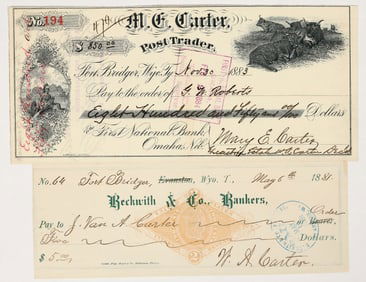 No. 194
M. E. Carter,
$ 850.00
Post Trader.
Fort Bridger, Wyo. Ty Nov. 30 1883
Pay to the order of G. W. Roberts
Eight Hundred and Fifty and Dollars
First National Bank
Omaha, Neb. Mary E. Carter
Estate W. A. Carter Decd
No. 64 Fort Bridger, Evanston, Wyo. T. May 6th 1881.
Beckwith & Co., Bankers,
Pay to J. Van A. Carter or Order Bearer,
Five Dollars.
$ 5.00 W. A. Carter